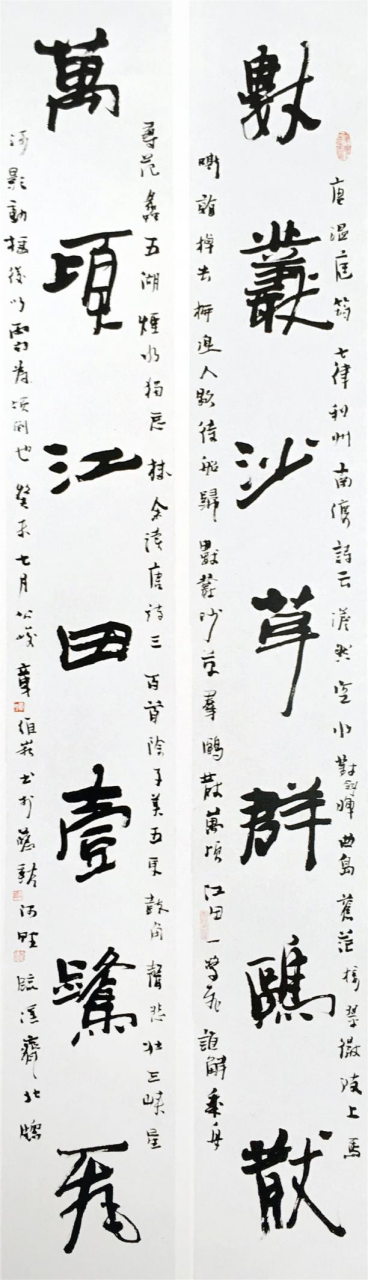 數叢沙草群鷗散
唐溫庭筠七律利州南渡詩云澹然空水對斜暉曲島蒼茫接翠微陂上馬
嘶看棹去柳邊人歇待船歸數叢沙草羣鷗散萬頃江田一鷺飛誰解乘舟
萬頃江田壹鷺飛
尋范蠡五湖煙水獨忘機余讀唐詩三百首除子美五更鼓角聲悲壯三峽星
河影動搖後以為傾倒也癸未七月章伯書於